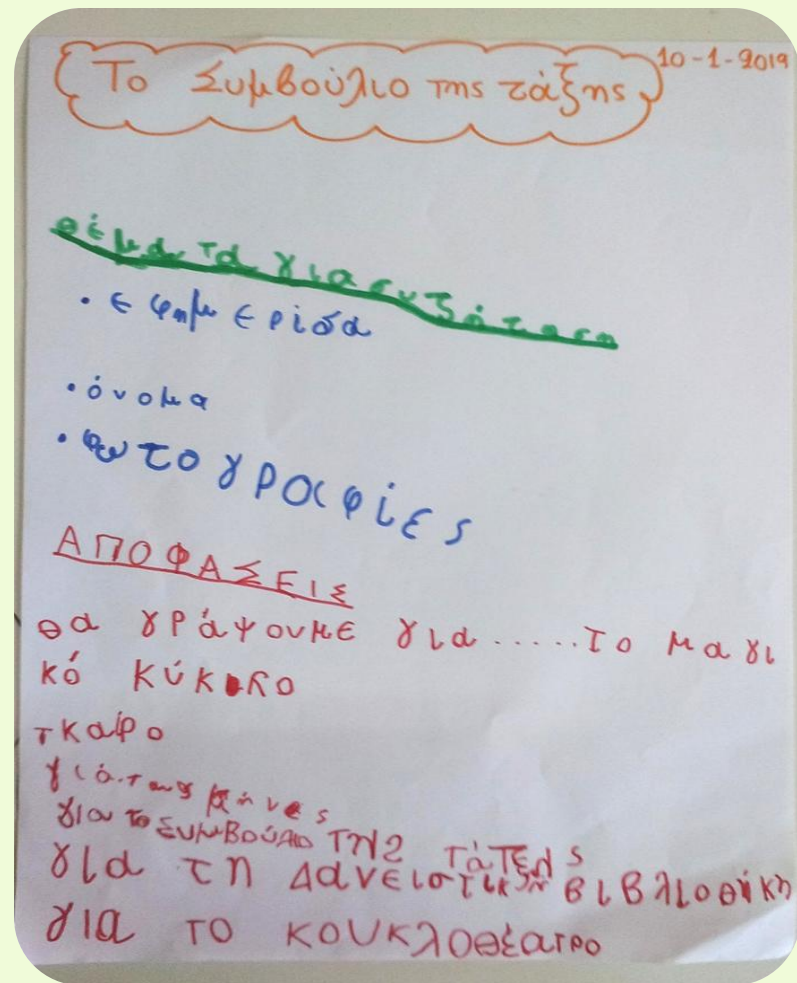 Το Συμβούλιο της τάξης
10-1-2019
θέματα για συζήτηση
• εφημερίδα
• όνομα
• φωτογραφίες
ΑΠΟΦΑΣΕΙΣ
θα γράψουμε για.....το μαγι
κό κύκλο
τκαιρο
για τους μήνες
για το Συμβούλιο της
για τη Δανειστική βιβλιοθήκη
για το κουκλοθέατρο